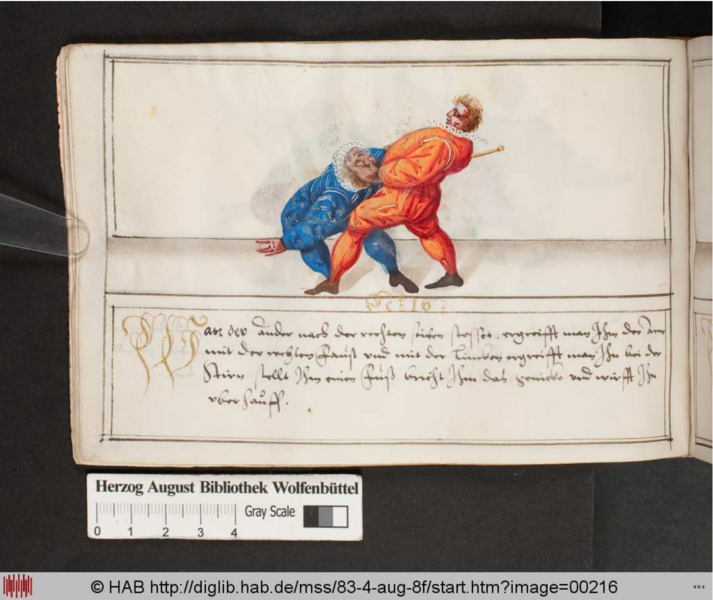 Wan der ander nach der rechten seiten stosset, ergreifft man Ihm den arm
mit der rechten Faust vnd mit der Lincken ergreifft man Ihn bei der
Stirn stellt Ihm einen Fuß bricht Ihm das genick vnd wirfft Ihn
vber hauff.
Herzog August Bibliothek Wolfenbüttel
Gray Scale
0 1 2 3 4
© HAB http://diglib.hab.de/mss/83-4-aug-8f/start.htm?image=00216